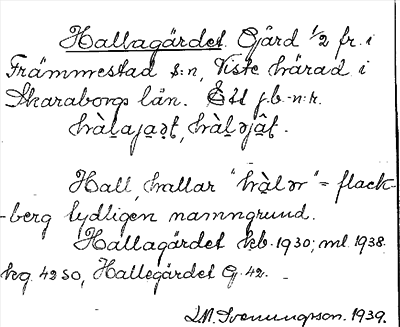 Hallagärdet. Gård 1/2 fr. i
Främmestad s:n, Viste härad i
Skaraborgs län. Ett j.b.-n:r.
hàlajaḍt, hàləjât.
Hall, hallar "hàlər" = flack-
-berg tydligen namngrund.
Hallagärdet kb. 1930; ml. 1938.
hg. 42 SO, Hallegärdet G. 42.
L.M. Svenungsson. 1939.